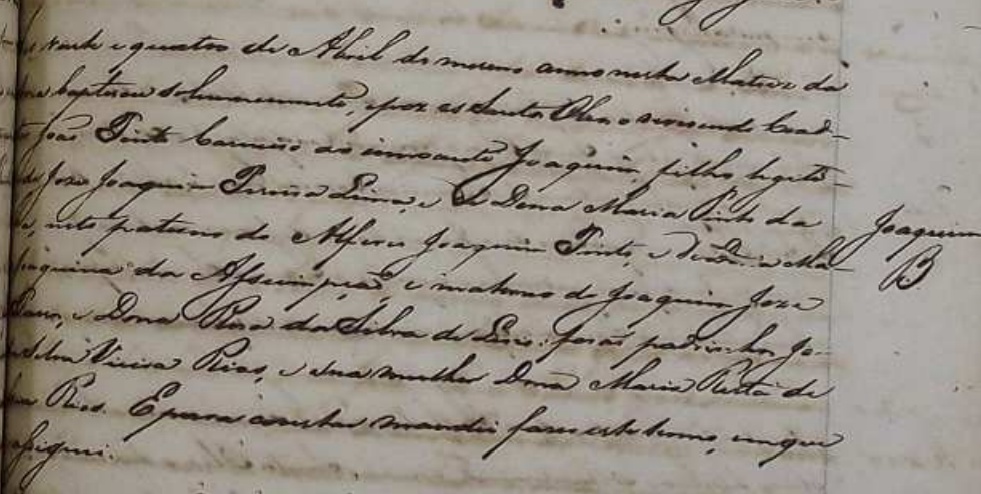 vinte e quatro de Abril do mesmo anno nesta Matriz da
baptisou solemnemente, e poz os Santos Oleos o reverendo Coad-
João Pinto Carneiro ao innocente Joaquim, filho legiti-
de Joze Joaquim Pereira Lima, e de Dona Maria Pinto da
neto paterno do Alferes Joaquim Pinto, e de Dona Ma-
Joaquina da Assumpção, e materno de Joaquim Joze
e Dona Rosa da Silva de : forão padrinhos Jo-
Silva Vieira Rios, e sua mulher Dona Maria Rita de
Rios. E para constar mandei fazer este termo, em que
assignei.
Joaquim
B